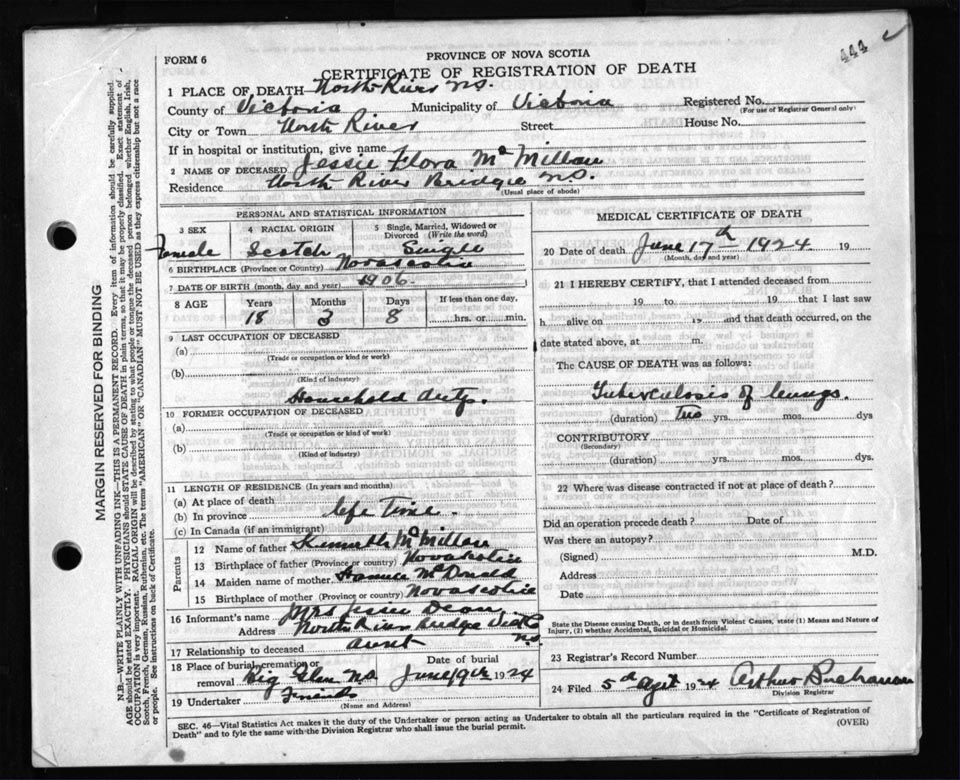 444
FORM 6
PROVINCE OF NOVA SCOTIA
CERTIFICATE OF REGISTRATION OF DEATH
1 PLACE OF DEATH North River N.S.
County of Victoria Municipality of Victoria Registered No.
(For use of Registrar General only)
City or Town North River Street House No.
If in hospital or institution, give name
2 NAME OF DECEASED Jessie Flora McMillan
Residence North River Bridge N.S.
(Usual place of abode)
MARGIN RESERVED FOR BINDING
N.B.—WRITE PLAINLY WITH UNFADING INK—THIS IS A PERMANENT RECORD. Every item of information should be carefully supplied.
AGE should be stated EXACTLY. PHYSICIANS should STATE CAUSE OF DEATH in plain terms, so that it may be properly classified. Exact statement of
OCCUPATION is very important. RACIAL ORIGIN will be described by stating to what people or tongue the deceased person belonged whether English, Irish,
Scotch, French, German, Russian, Ruthenian, etc. The terms "AMERICAN" OR "CANADIAN" MUST NOT BE USED as they express citizenship but not a race
or people. See instructions on back of Certificate.
PERSONAL AND STATISTICAL INFORMATION
3 SEX 4 RACIAL ORIGIN 5 Single, Married, Widowed or
Divorced (Write the word)
Female Scotch Single
6 BIRTHPLACE (Province or Country) Novascotia
7 DATE OF BIRTH (month, day and year) 1906
8 AGE Years Months Days If less than one day,
18 3 8 hrs. or min.
9 LAST OCCUPATION OF DECEASED
(a)
(Trade or occupation or kind of work)
(b)
(Kind of industry)
Household duty.
10 FORMER OCCUPATION OF DECEASED
(a)
(Trade or occupation or kind of work)
(b)
(Kind of industry)
11 LENGTH OF RESIDENCE (In years and months)
(a) At place of death
(b) In province life Time.
(c) In Canada (if an immigrant)
Parents
12 Name of father Kenneth McMillan
13 Birthplace of father (Province or country) Novascotia
14 Maiden name of mother McDonald
15 Birthplace of mother (Province or country) Novascotia
16 Informant's name Mrs Jessie
Address North River Bridge Vict Co
N.S.
17 Relationship to deceased aunt
18 Place of burial, cremation or Date of burial
removal Big Glen N.S. June 19th 1924
19 Undertaker Friends
(Name and Address)
MEDICAL CERTIFICATE OF DEATH
20 Date of death June 17th 1924 19
(Month, day and year)
21 I HEREBY CERTIFY, that I attended deceased from
19 to 19 that I last saw
h alive on 19 and that death occurred, on the
date stated above, at m.
The CAUSE OF DEATH was as follows:
Tuberculosis of lungs.
(duration) Two yrs. mos. dys
CONTRIBUTORY
(Secondary)
(duration) yrs. mos. dys.
22 Where was disease contracted if not at place of death?
Did an operation precede death? Date of
Was there an autopsy?
(Signed) M.D.
Address
Date
State the Disease causing Death, or in death from Violent Causes, state (1) Means and Nature of
Injury, (2) whether Accidental, Suicidal or Homicidal.
23 Registrar's Record Number
24 Filed 5th 1924 Arthur Buchanan
Division Registrar
SEC. 46—Vital Statistics Act makes it the duty of the Undertaker or person acting as Undertaker to obtain all the particulars required in the "Certificate of Registration of
Death" and to fyle the same with the Division Registrar who shall issue the burial permit. (OVER)